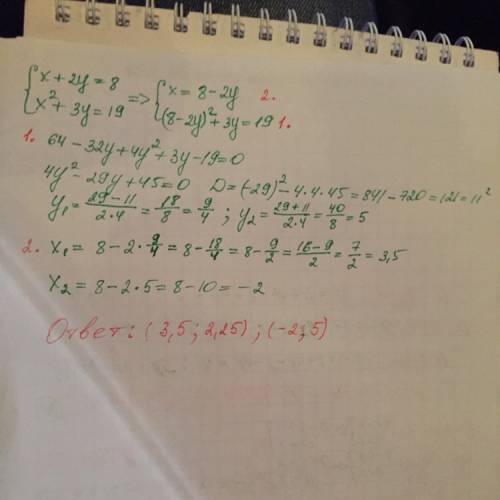 {x + 2y = 8 => {x = 8 - 2y 2.
{x² + 3y = 19 {(8-2y)² + 3y = 19 1.
1. 64 - 32y + 4y² + 3y - 19 = 0
4y² - 29y + 45 = 0 D = (-29)² - 4·4·45 = 841 - 720 = 121 = 11²
y₁ = (29-11)/(2·4) = 18/8 = 9/4 ; y₂ = (29+11)/(2·4) = 40/8 = 5
2. x₁ = 8 - 2·9/4 = 8 - 18/4 = 8 - 9/2 = (16-9)/2 = 7/2 = 3,5
x₂ = 8 - 2·5 = 8 - 10 = -2
Ответ: (3,5; 2,25); (-2; 5)